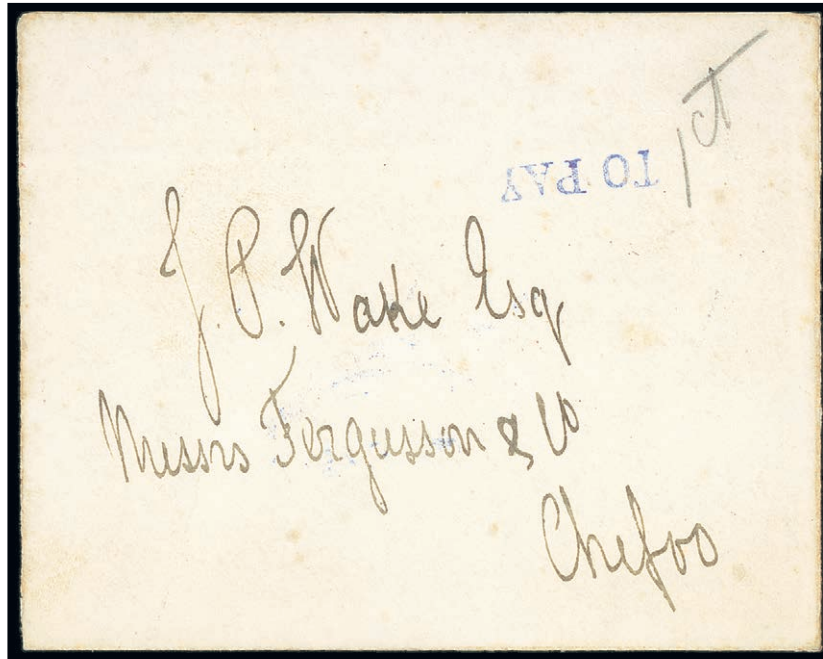 1 ct
TO PAY
J. P. Wake Esq
Messrs Fergusson & Co
Chefoo